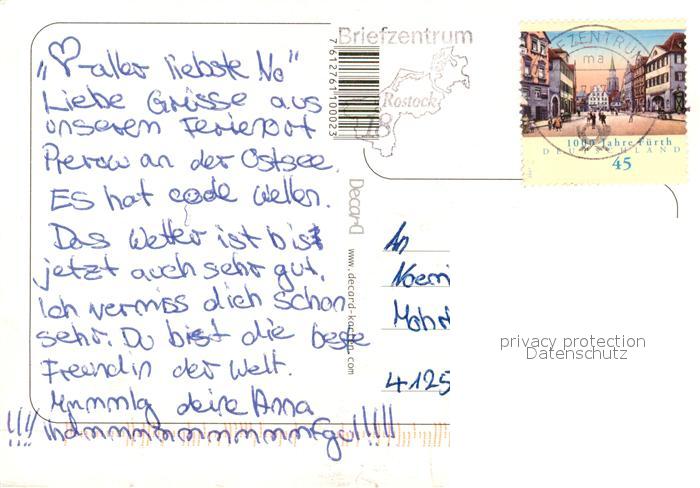 "♡-aller liebste No"
Liebe Grüsse aus
unserem Ferienort
Prerow an der Ostsee.
ES hat coole Wellen.
Das Wetter ist bis
jetzt auch sehr gut.
Ich vermiss dich schon
sehr. Du bist die beste
Freundin der Welt.
deine Anna
Briefzentrum
Rostock
18
7612761100023
Decard
www.decard-karten.com
BRIEFZENTRUM
ma
1000 Jahre Fürth
DEUTSCHLAND
45
An
Noemi
4125
privacy protection
Datenschutz